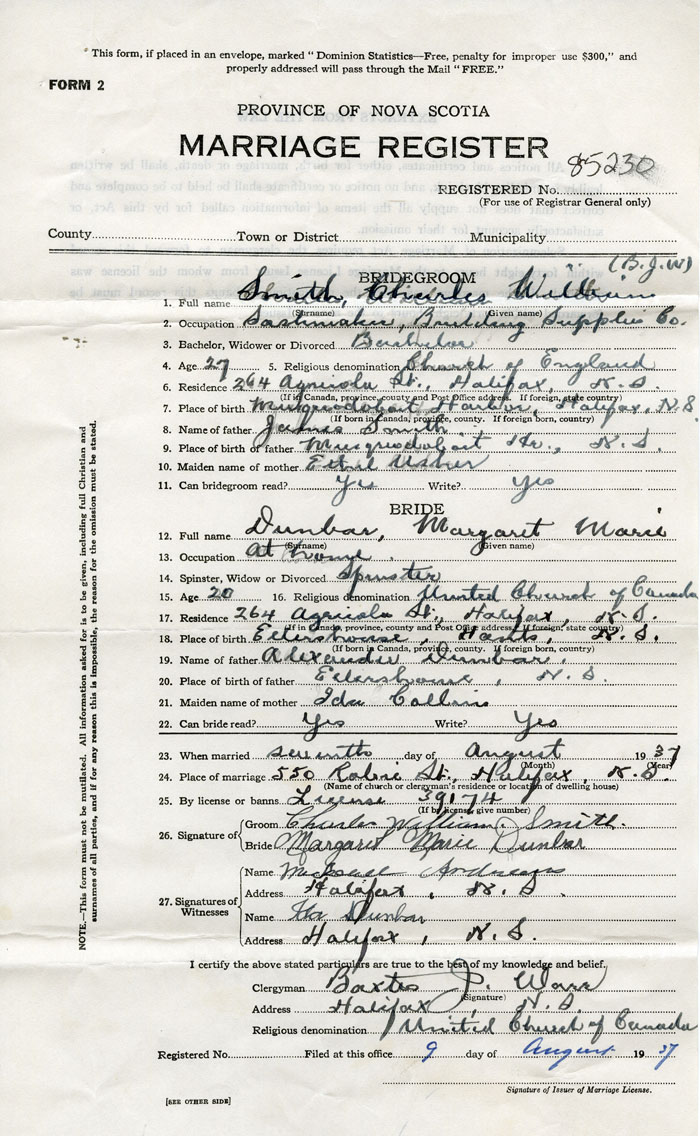 This form, if placed in an envelope, marked "Dominion Statistics—Free, penalty for improper use $300," and
properly addressed will pass through the Mail "FREE."
FORM 2
PROVINCE OF NOVA SCOTIA
MARRIAGE REGISTER
85230
REGISTERED No.
(For use of Registrar General only)
County Town or District Municipality
(B.J.W)
BRIDEGROOM
1. Full name Smith, Charles William
(Surname) (Given name)
2. Occupation Sashmaker, Building Supplies Co.
3. Bachelor, Widower or Divorced Bachelor
4. Age 27 5. Religious denomination Church of England
6. Residence 264 Agricola St., Halifax, N.S.
(If in Canada, province, county and Post Office address. If foreign, state country)
7. Place of birth Musquodoboit Harbor, Halifax, N.S.
(If born in Canada, province, county. If foreign born, country)
8. Name of father James Smith
9. Place of birth of father Musquodoboit Hr., N.S.
10. Maiden name of mother Ethel
11. Can bridegroom read? Yes Write? Yes
BRIDE
12. Full name Dunbar, Margaret Marie
(Surname) (Given name)
13. Occupation At home.
14. Spinster, Widow or Divorced Spinster
15. Age 20 16. Religious denomination United Church of Canada
17. Residence 264 Agricola St., Halifax, N.S.
(If in Canada, province, county and Post Office address. If foreign, state country)
18. Place of birth Ellershouse, Hants, N.S.
(If born in Canada, province, county. If foreign born, country)
19. Name of father Alexander Dunbar
20. Place of birth of father Ellershouse, N.S.
21. Maiden name of mother Ida Collins
22. Can bride read? Yes Write? Yes
23. When married seventh day of August 1937
(Month) (Year)
24. Place of marriage 550 Robie St., Halifax, N.S.
(Name of church or clergyman's residence or location of dwelling house)
25. By license or banns License 39174
(If by license give number)
26. Signature of Groom Charles William Smith.
Bride Margaret Marie Dunbar
27. Signatures of Witnesses
Name Michael Andrews
Address Halifax, N.S.
Name Dunbar
Address Halifax, N.S.
I certify the above stated particulars are true to the best of my knowledge and belief.
Clergyman Baxter J. Warr
(Signature)
Address Halifax, N.S.
Religious denomination United Church of Canada
Registered No. Filed at this office 9 day of August 1937
Signature of Issuer of Marriage License.
[SEE OTHER SIDE]
NOTE.—This form must not be mutilated. All information asked for is to be given, including full Christian and
surnames of all parties, and if for any reason this is impossible, the reason for the omission must be stated.